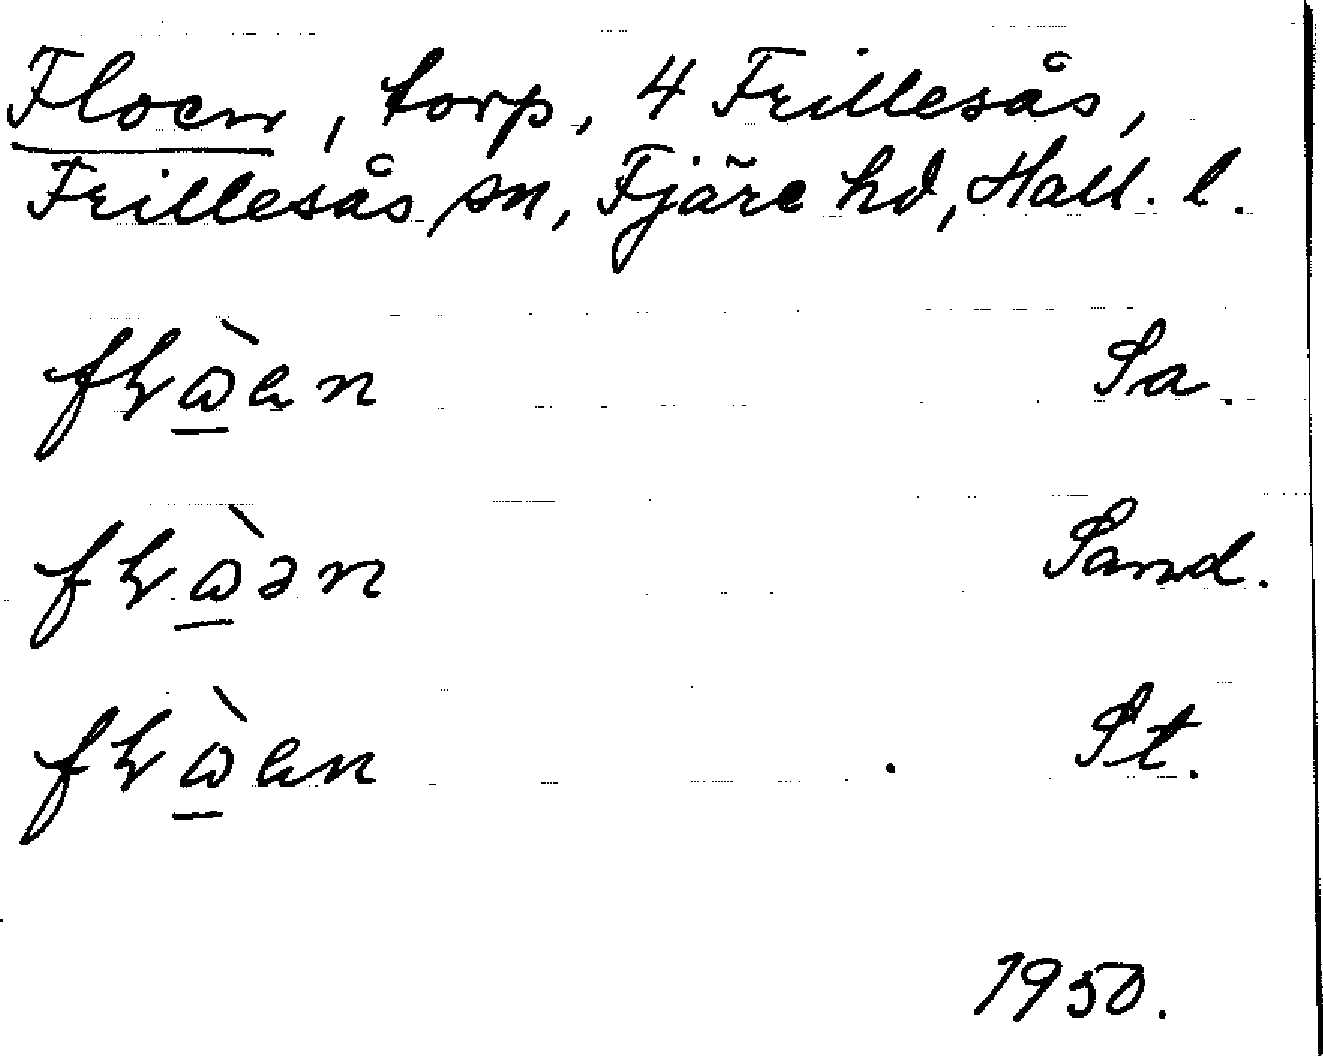 Floen, torp, 4 Frillesås,
Frillesås sn, Fjäre hd, Hall. l.
Sa.
Sand.
St.
1950.